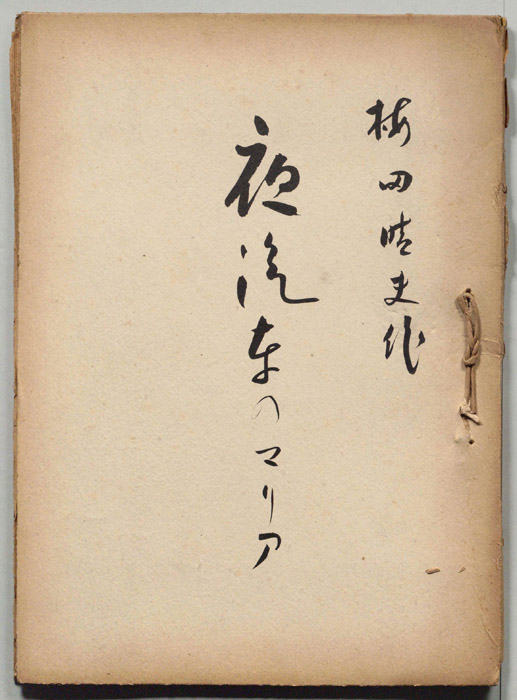 梅田晴夫作
夜汽車のマリア